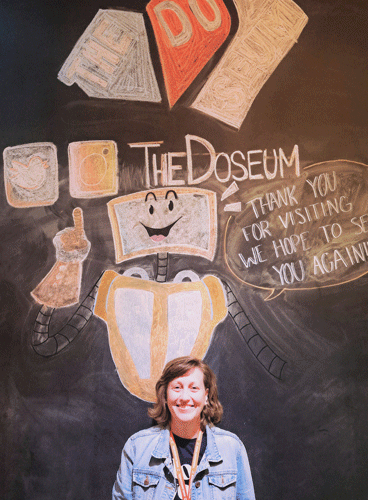 THE
DO
THEDOSEUM
THANK YOU
FOR VISITING
WE HOPE TO SE
YOU AGAIN!